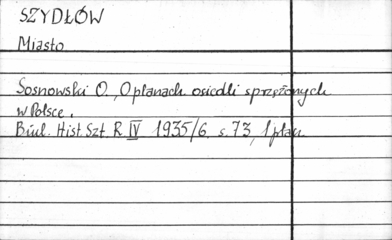 SZYDŁÓW
Miasto
Sosnowski O., O planach osiedli sprzężonych
w Polsce.
Biul. Hist. Szt. R IV 1935/6. s. 73, 1 plan